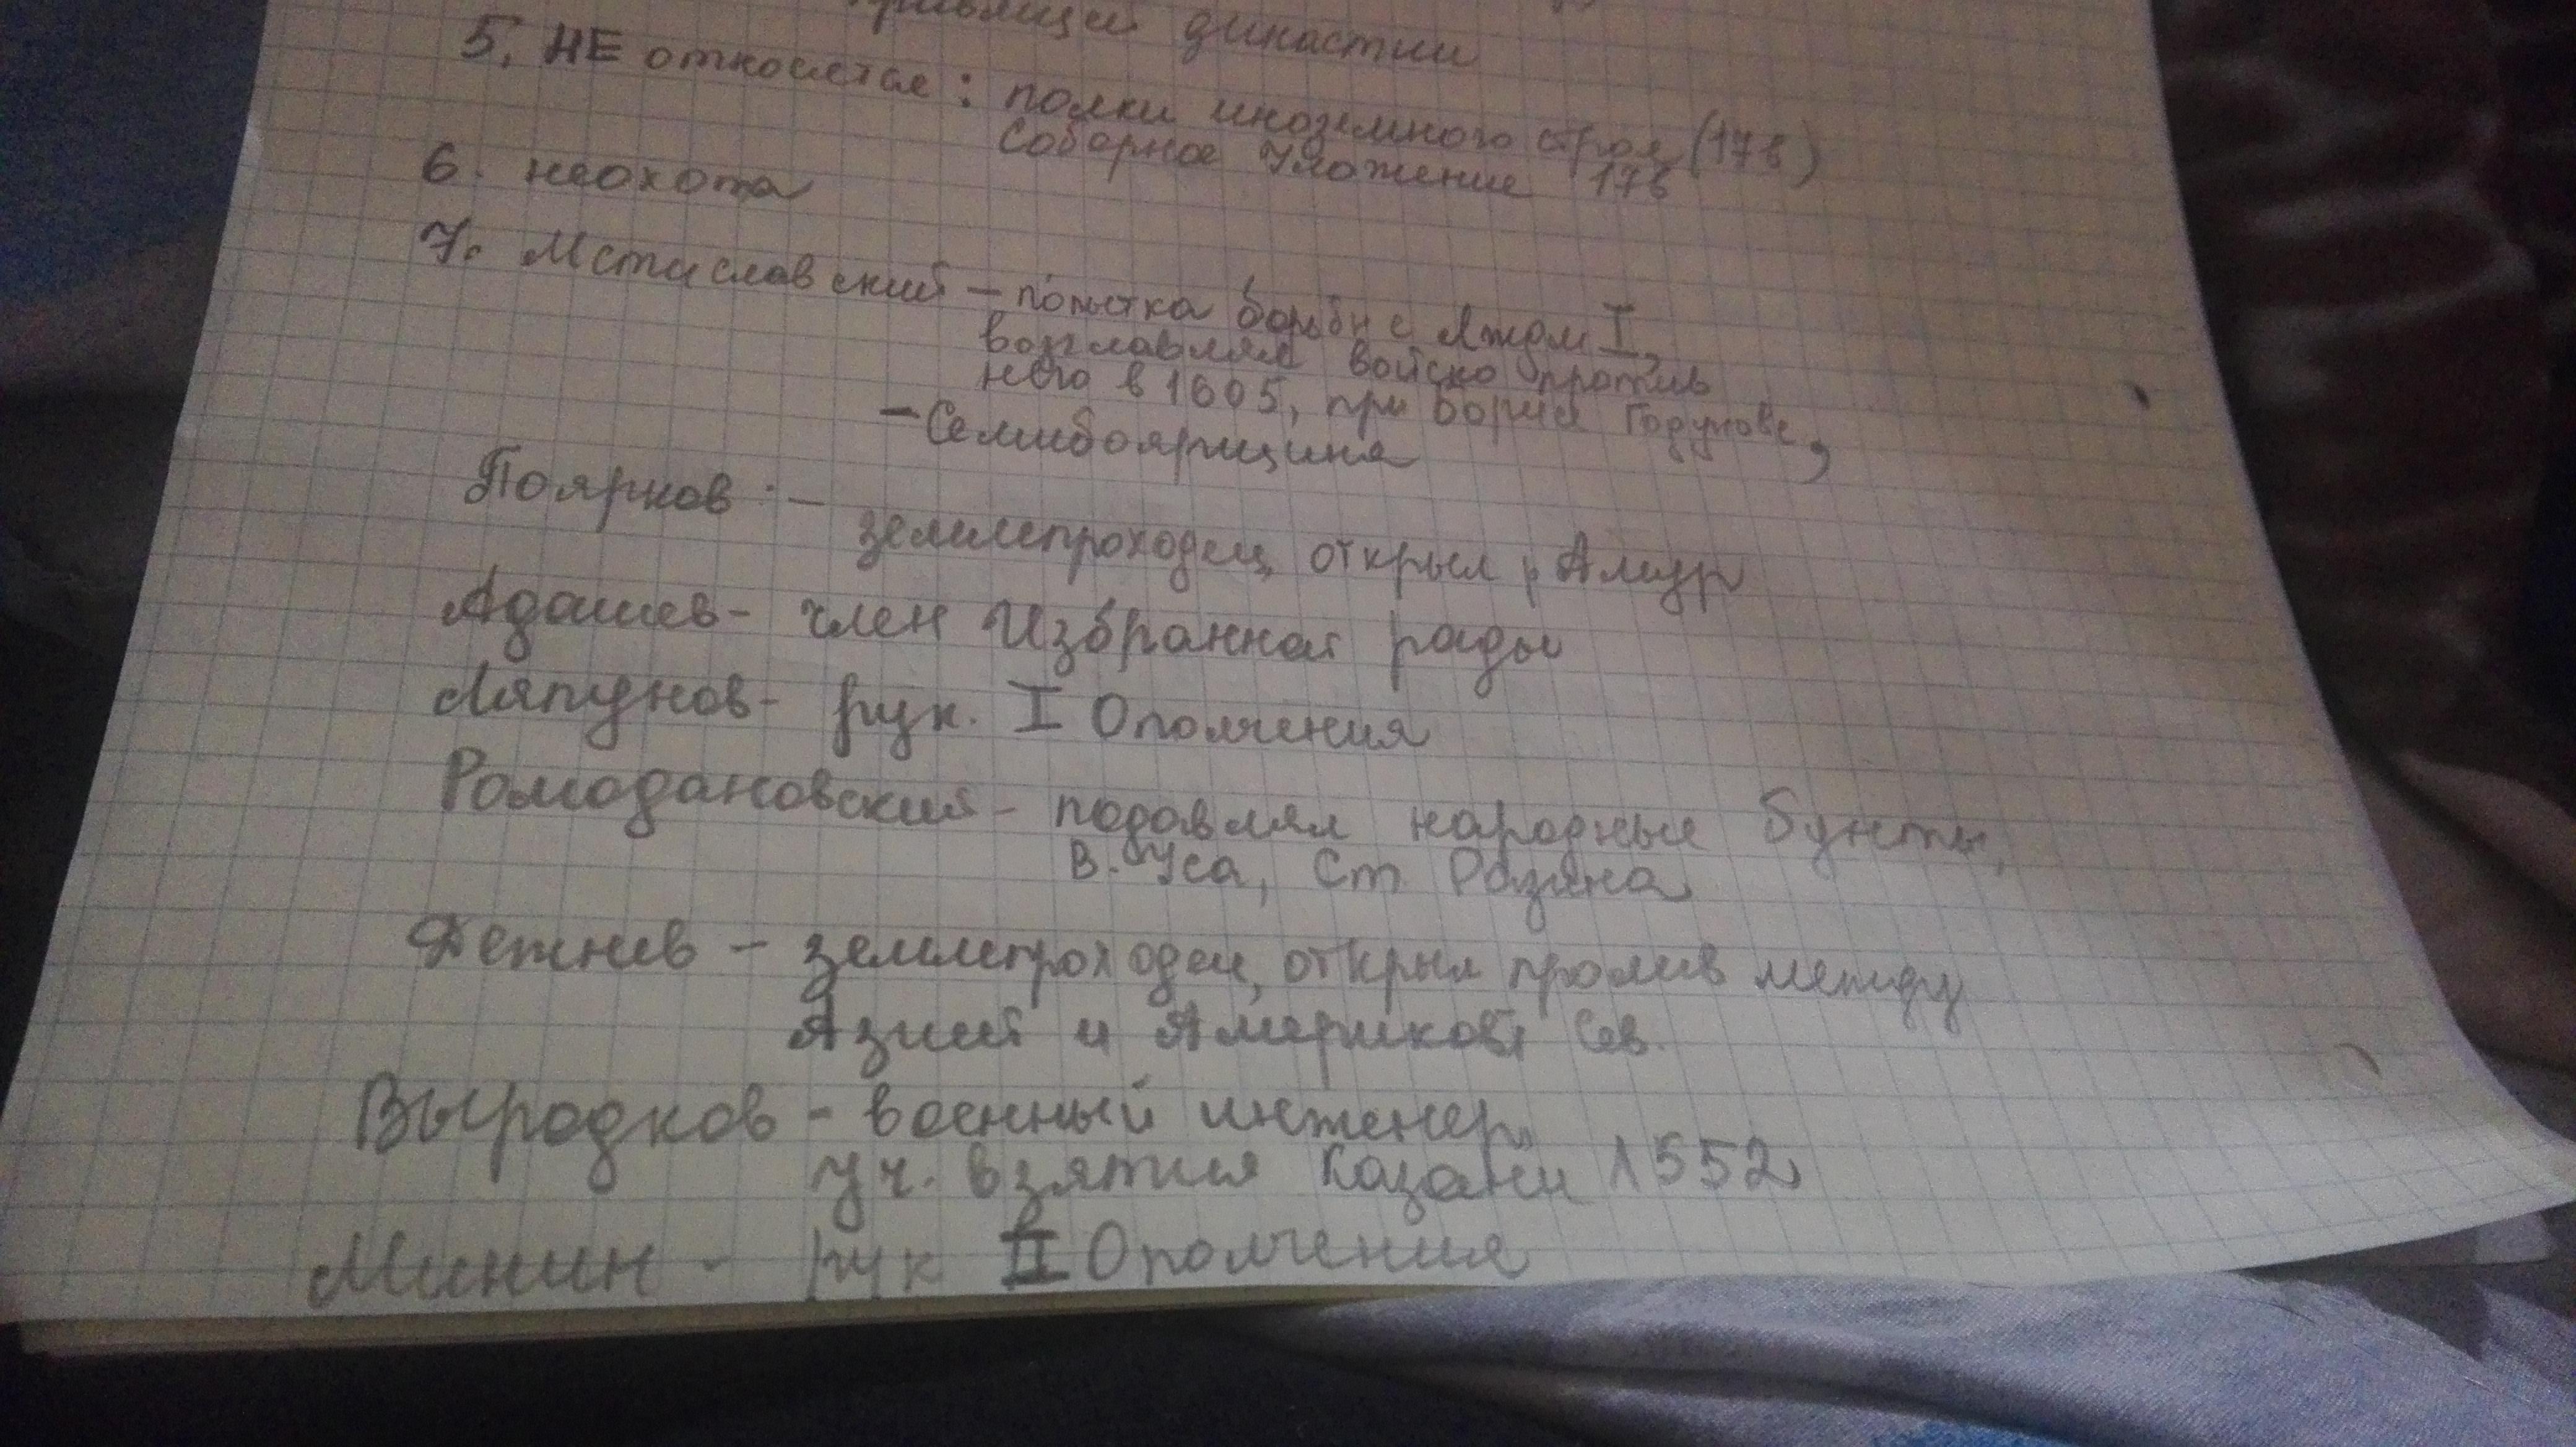 династии
5. НЕ относятся: полки иноземного строя (17в)
Соборное Уложение 17в
6. неохота
7. Мстиславский – попытка борьбы с Лждм I,
возглавлял войско против
него в 1605, при Борисе Годунове,
– Семибоярщина
Поярков – землепроходец, открыл р Амур
Адашев – член Избранной рады
Ляпунов – рук. I Ополчения
Ромодановский – подавлял народные бунты,
В. Уса, Ст Разина
Дежнев – землепроходец, открыл пролив между
Азией и Америкой Сев.
Выродков – военный инженер,
уч. взятия Казани 1552
Минин – рук II Ополчения